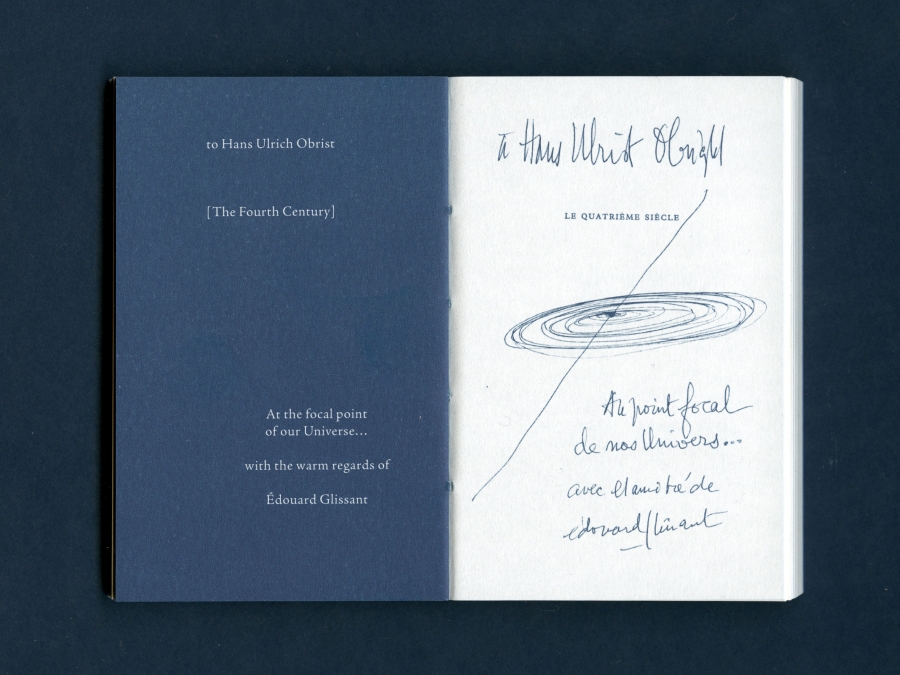 to Hans Ulrich Obrist
[The Fourth Century]
At the focal point
of our Universe…
with the warm regards of
Édouard Glissant
à Hans Ulrist Obright
LE QUATRIÈME SIÈCLE
Au point focal
de nos Univers...
avec l'amitié de
édouard glissant